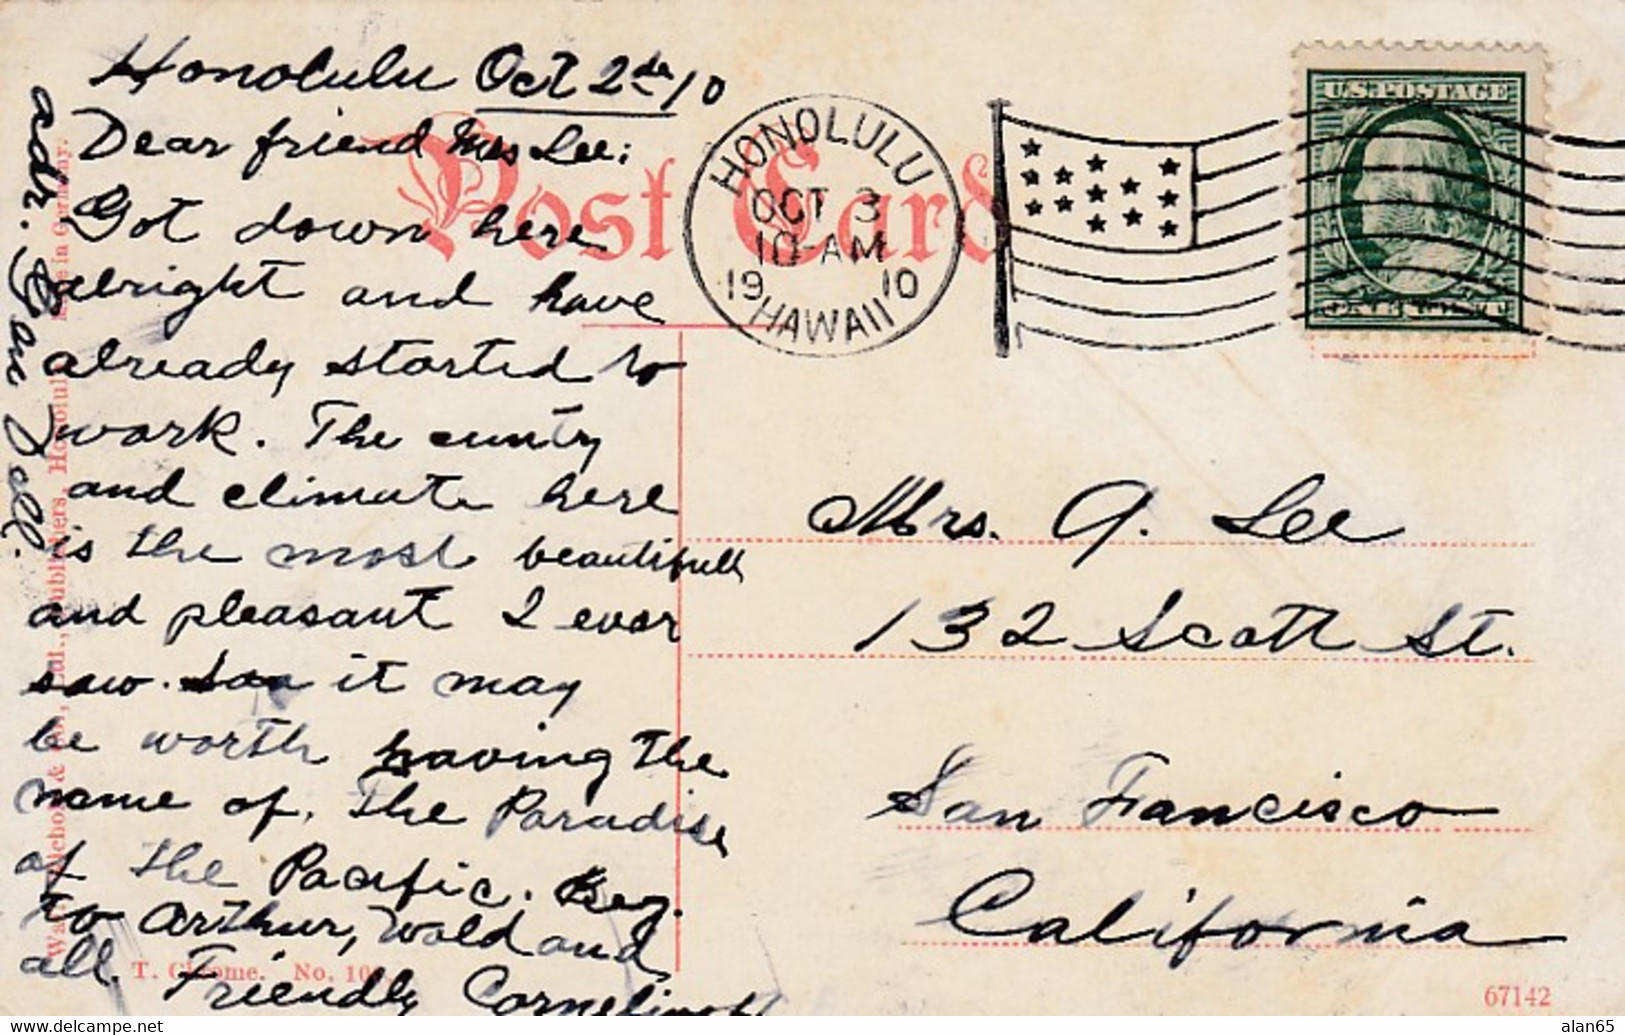 Honolulu Oct 2de 10
Dear friend Mrs Lee:
Got down here
alright and have
already started to
work. The cunty
and climate here
is the most beautifull
and pleasant I ever
saw. it may
be worth having the
name of. The Paradise
of the Pacific. Reg.
to Arthur, Wald and
all. Friendly
adr. Gen Dell.
Post Card
HONOLULU
OCT 3
10-AM
1910
HAWAII
U.S. POSTAGE
ONE CENT
Mrs. A. Lee
132 Scott St.
San Francisco
California
Publishers, Honolulu
in Germany.
T. Chrome. No. 10
67142
alan65
www.delcampe.net